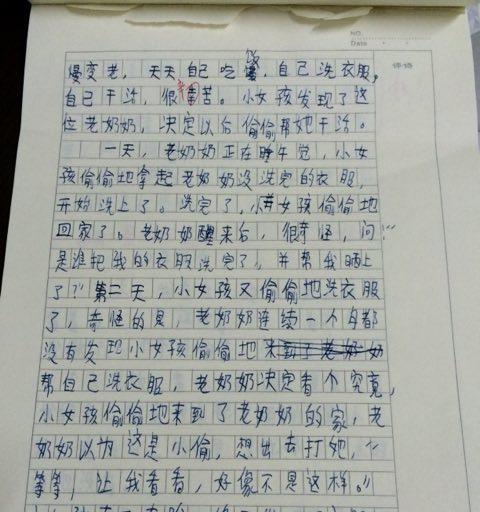 NO.
Date
评语
慢变老，天天自己吃饭，自己洗衣服，
自己干活，很辛苦。小女孩发现了这
位老奶奶，决定以后偷偷帮她干活。
一天，老奶奶正在睡午觉，小女
孩偷偷地拿起老奶奶没洗完的衣服，
开始洗上了。洗完了，小女孩偷偷地
回家了。老奶奶醒来后，很奇怪，问：“
是谁把我的衣服洗完了，并帮我晒上
了？”第二天，小女孩又偷偷地洗衣服
了，奇怪的是，老奶奶连续一个月都
没有发现小女孩偷偷地
帮自己洗衣服，老奶奶决定看个究竟，
小女孩偷偷地来到了老奶奶的家，老
奶奶以为这是小偷，想出去打她，“
等等，让我看看，好像不是这样。”